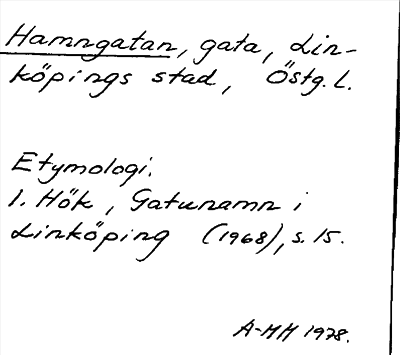 Hamngatan, gata, Lin-
köpings stad, Östg. l.
Etymologi.
I. Hök, Gatunamn i
Linköping (1968), s. 15.
A-MH 1978.